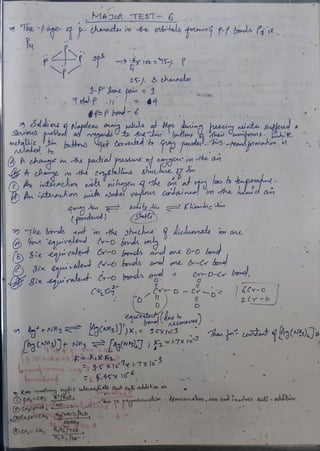 MAJOR TEST - 6
→ The % age of p- character in the orbitals forming P-P bonds P4 is
P4
P
P P
P
sp3 → 3/4 x 100 = 75% P
25% S character
1-P lone pair = 1
Total P .. 11 .. = 4
P-P bond - 6
→ Soldiers of Napolean army while at Alps during freezing winter suffered a
serious problem as regards to the tin buttons of their uniforms. White
metallic tin buttons get converted to grey powder. This transformation is
related to
A change in the partial pressure of oxygen in the air
A change in the crystalline structure of tin
An interaction with nitrogen of the air at very low temperature.
An interaction with water vapour contained in the humid air
grey tin ⇌ white tin ⇌ Rhombic tin
(powdered) (stable)
→ The bonds present in the structure of dichromate ion are
four equivalent Cr-O bonds only
Six equivalent Cr-O bonds and one O-O bond
Six equivalent Cr-O bonds and one Cr-Cr bond
Six equivalent Cr-O bonds and " Cr-O-Cr bond.
Cr2O7 2-
O O
O - Cr - O - Cr - O
O O
6 Cr-O
2 Cr-O
equivalent (due to
bond resonance)
→ Ag+ + NH3 ⇌ [Ag(NH3)]+ ; K1 = 3.5 x 10-3
[Ag(NH3)]+ + NH3 ⇌ [Ag(NH3)2]+ ; K2 = 1.7 x 10-3
Then for constant of [Ag(NH3)2]+ is
K = K1 x K2
= 3.5 x 10-3 x 1.7 x 10-3
= 5.95 x 10-6
Rxn involving cyclic intermediate and anti addition is